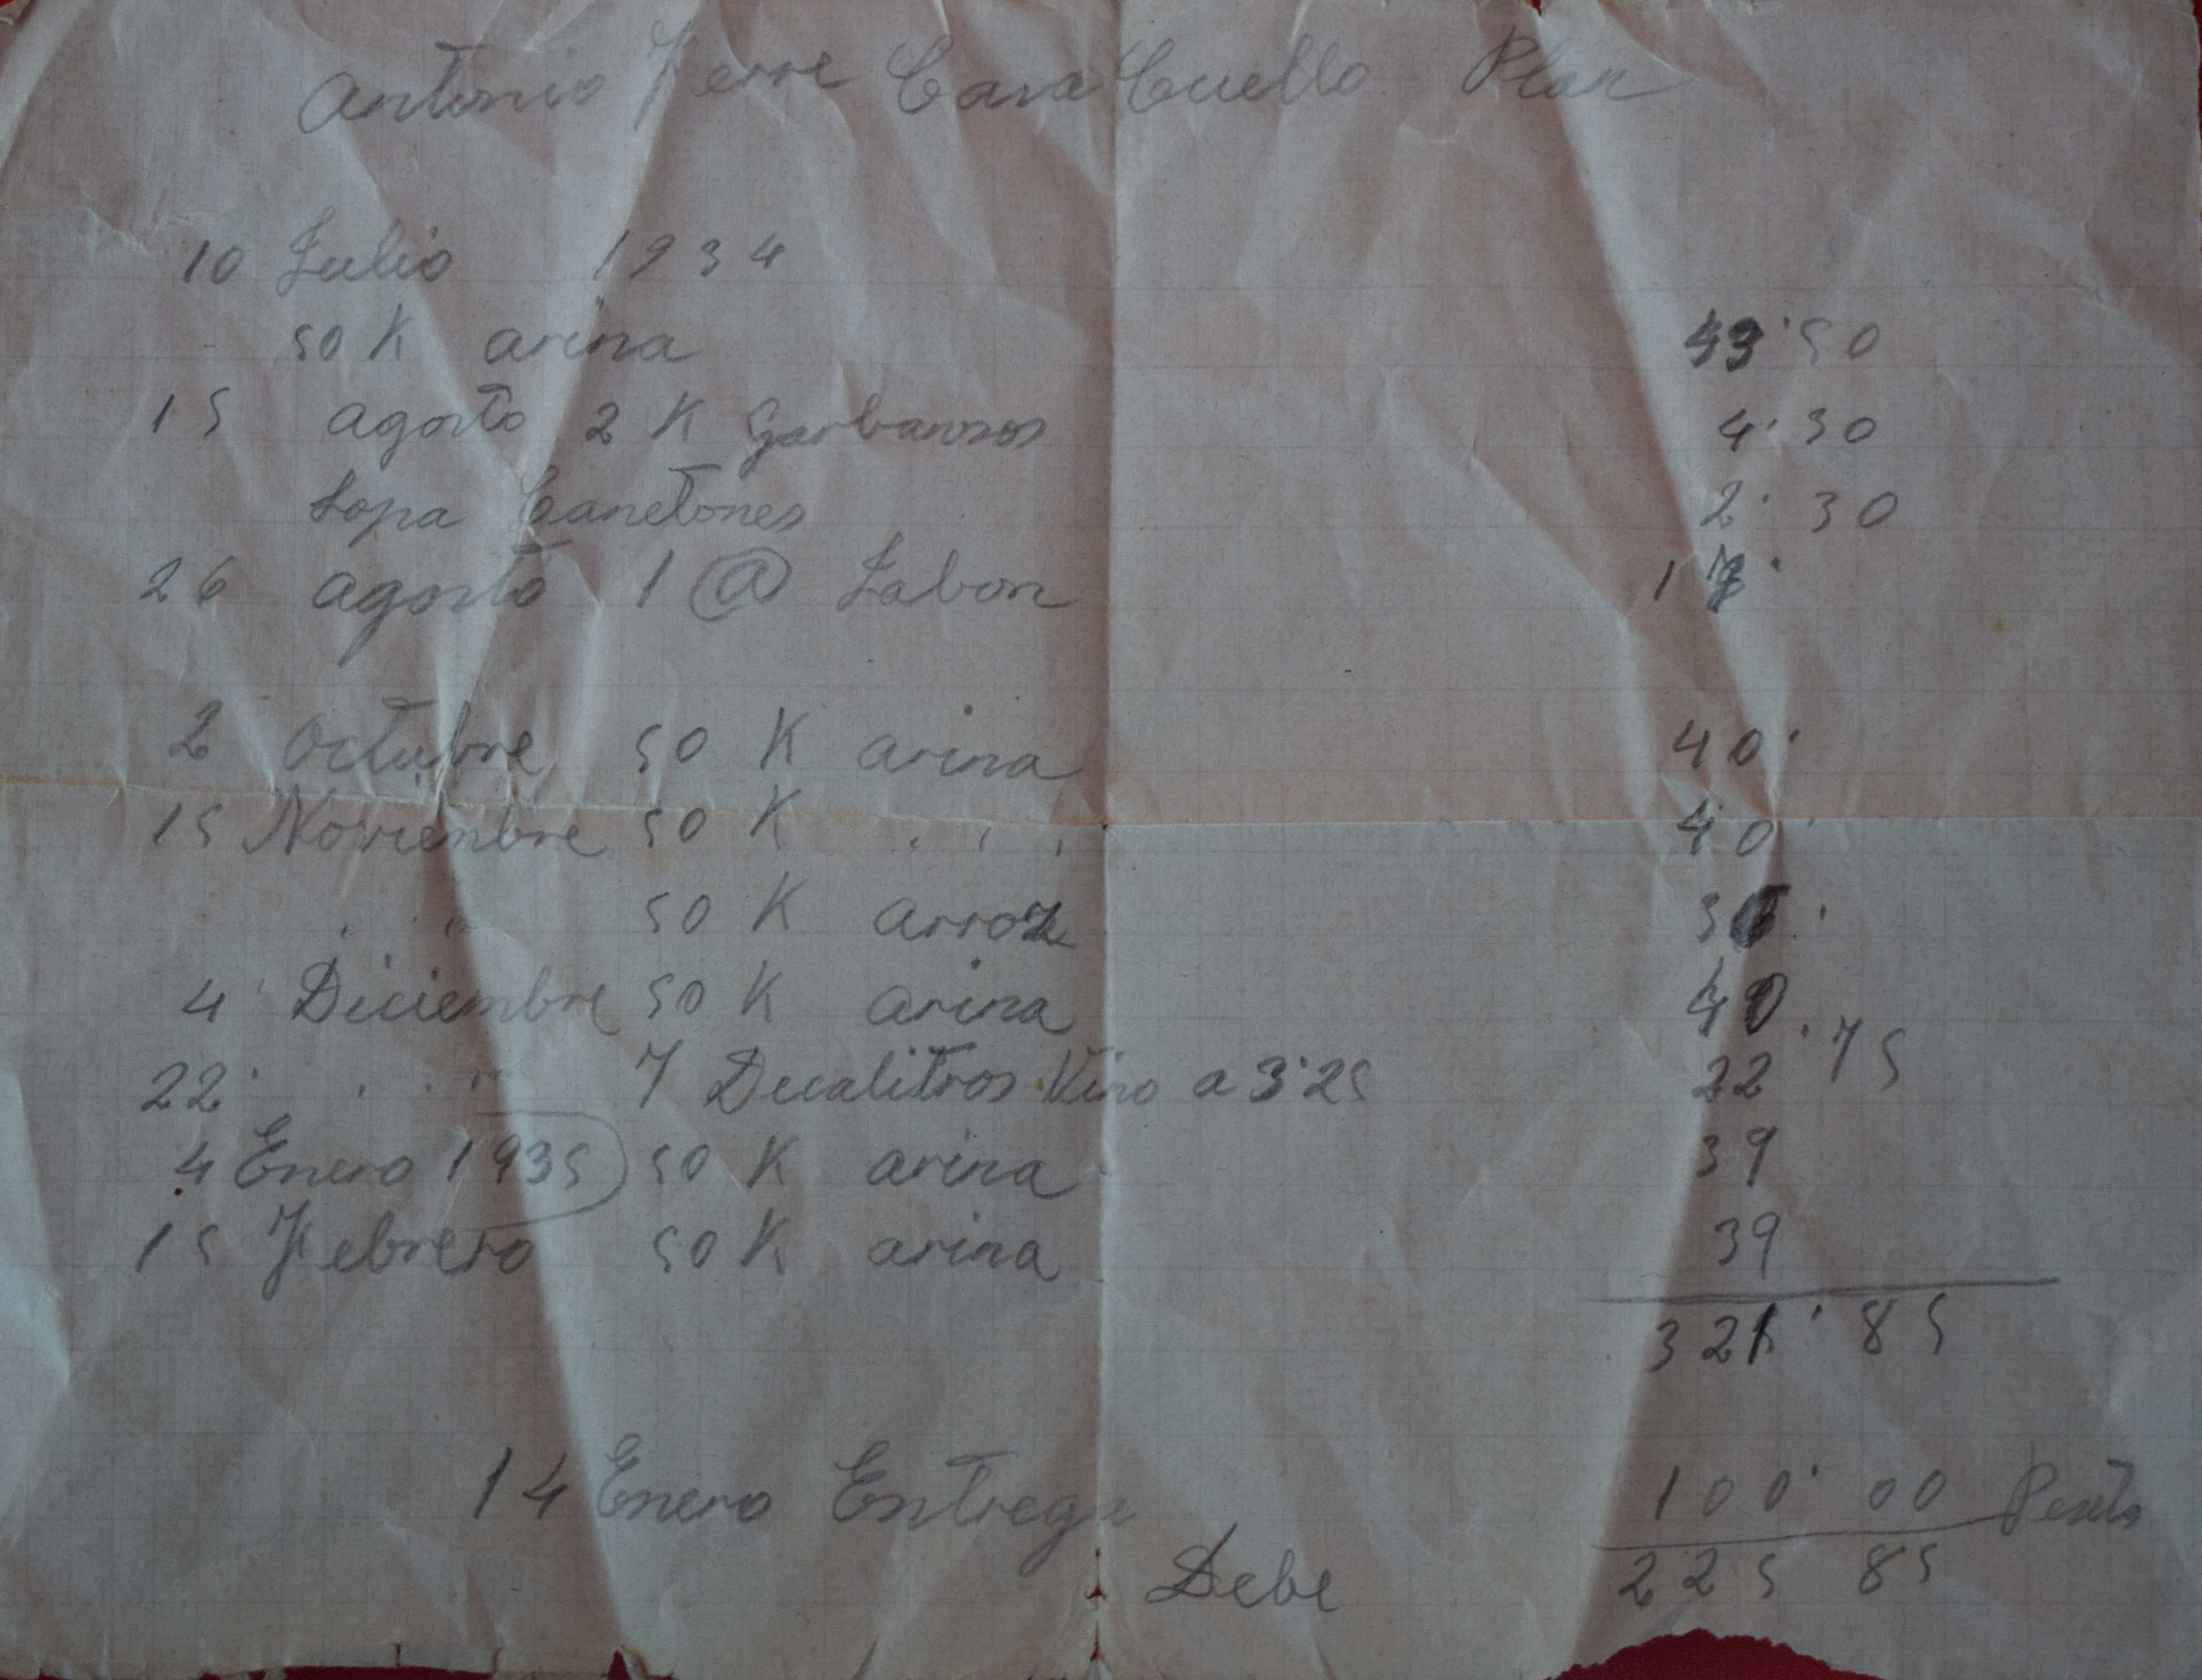 Antonio Ferre Casa Cuello Plan
10 Julio 1934
50 K arina 43'50
15 agosto 2 K Garbansos 4'30
Sopa Canetones 2'30
26 agosto 1 @ Jabon 17'
2 Octubre 50 K arina 40'
15 Noviembre 50 K " " " 40'
" " 50 K arroz
4 Diciembre 50 K arina 40
22 " " " 7 Decalitros Vino a 3'25 22'75
4 Enero 1935 50 K arina 39
15 Febrero 50 K arina 39
321'85
14 Enero Entrega 100'00 Peseta
Debe 225 85